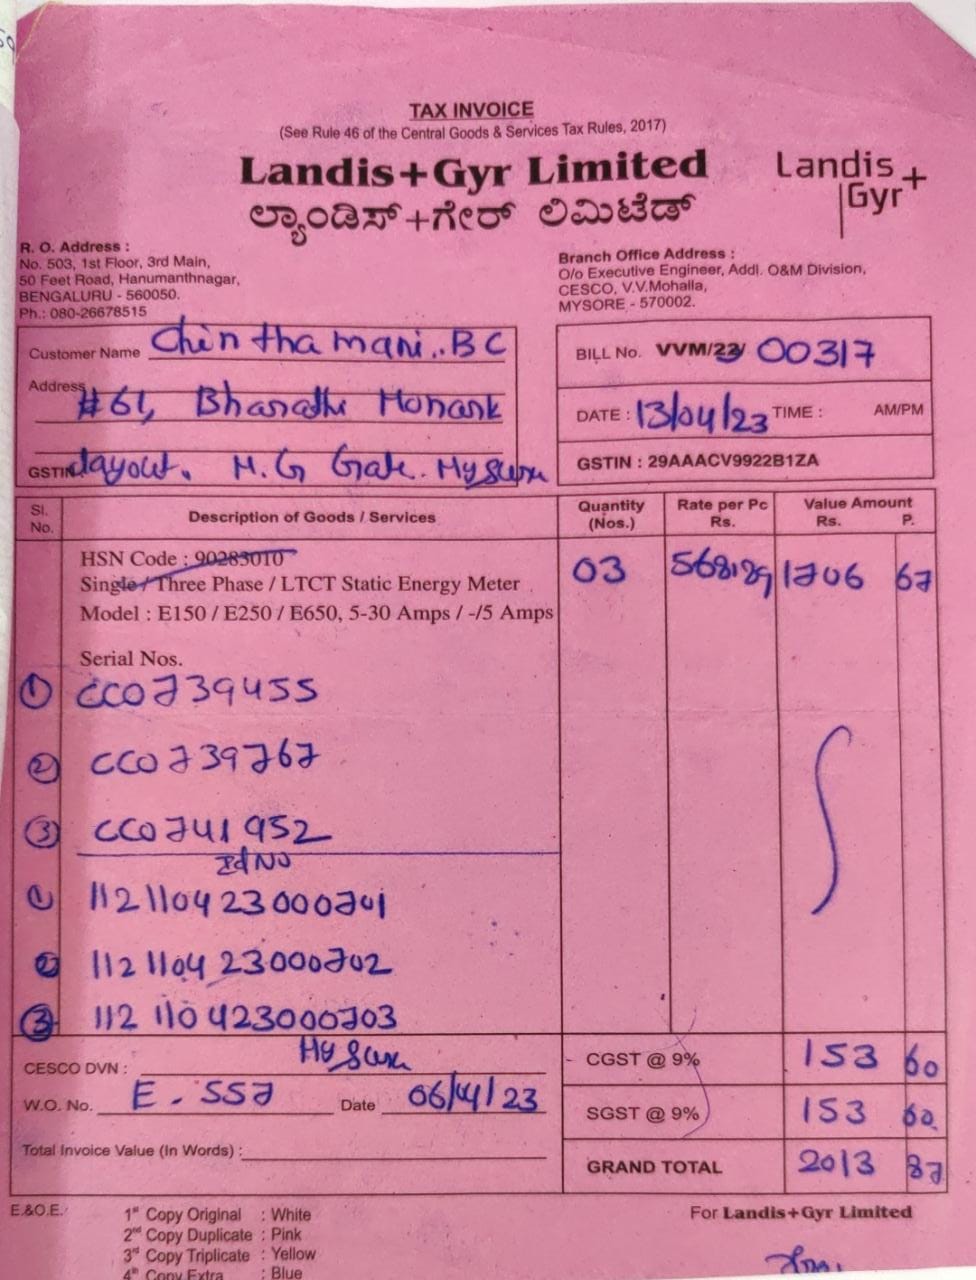 TAX INVOICE
(See Rule 46 of the Central Goods & Services Tax Rules, 2017)
Landis+Gyr Limited
ಲ್ಯಾಂಡಿಸ್+ಗೇರ್ ಲಿಮಿಟೆಡ್
Landis
Gyr+
R. O. Address :
No. 503, 1st Floor, 3rd Main,
50 Feet Road, Hanumanthnagar,
BENGALURU - 560050.
Ph.: 080-26678515
Branch Office Address :
O/o Executive Engineer, Addl. O&M Division,
CESCO, V.V.Mohalla,
MYSORE - 570002.
Customer Name Chinthamani..BC
Address #61, Bharathi
GSTIN layout. M.G Gate. Mysuru
BILL No. VVM/23/ 00317
DATE : 13/04/23 TIME : AM/PM
GSTIN : 29AAACV9922B1ZA
Sl. No. Description of Goods / Services Quantity (Nos.) Rate per Pc Rs. Value Amount Rs. P.
HSN Code : 90283010
Single / Three Phase / LTCT Static Energy Meter 03 568.89 1706 67
Model : E150 / E250 / E650, 5-30 Amps / -/5 Amps
Serial Nos.
1 CC0739455
2 CC0739767
3 CC0741952
Id NO
1 112110423000701
2 112110423000702
3 112110423000703
CESCO DVN : Mysuru
W.O. No. E-557 Date 06/04/23
Total Invoice Value (In Words) :
CGST @ 9% 153 60
SGST @ 9% 153 60
GRAND TOTAL 2013 87
E.&O.E.
1st Copy Original : White
2nd Copy Duplicate : Pink
3rd Copy Triplicate : Yellow
4th Copy Extra : Blue
For Landis+Gyr Limited